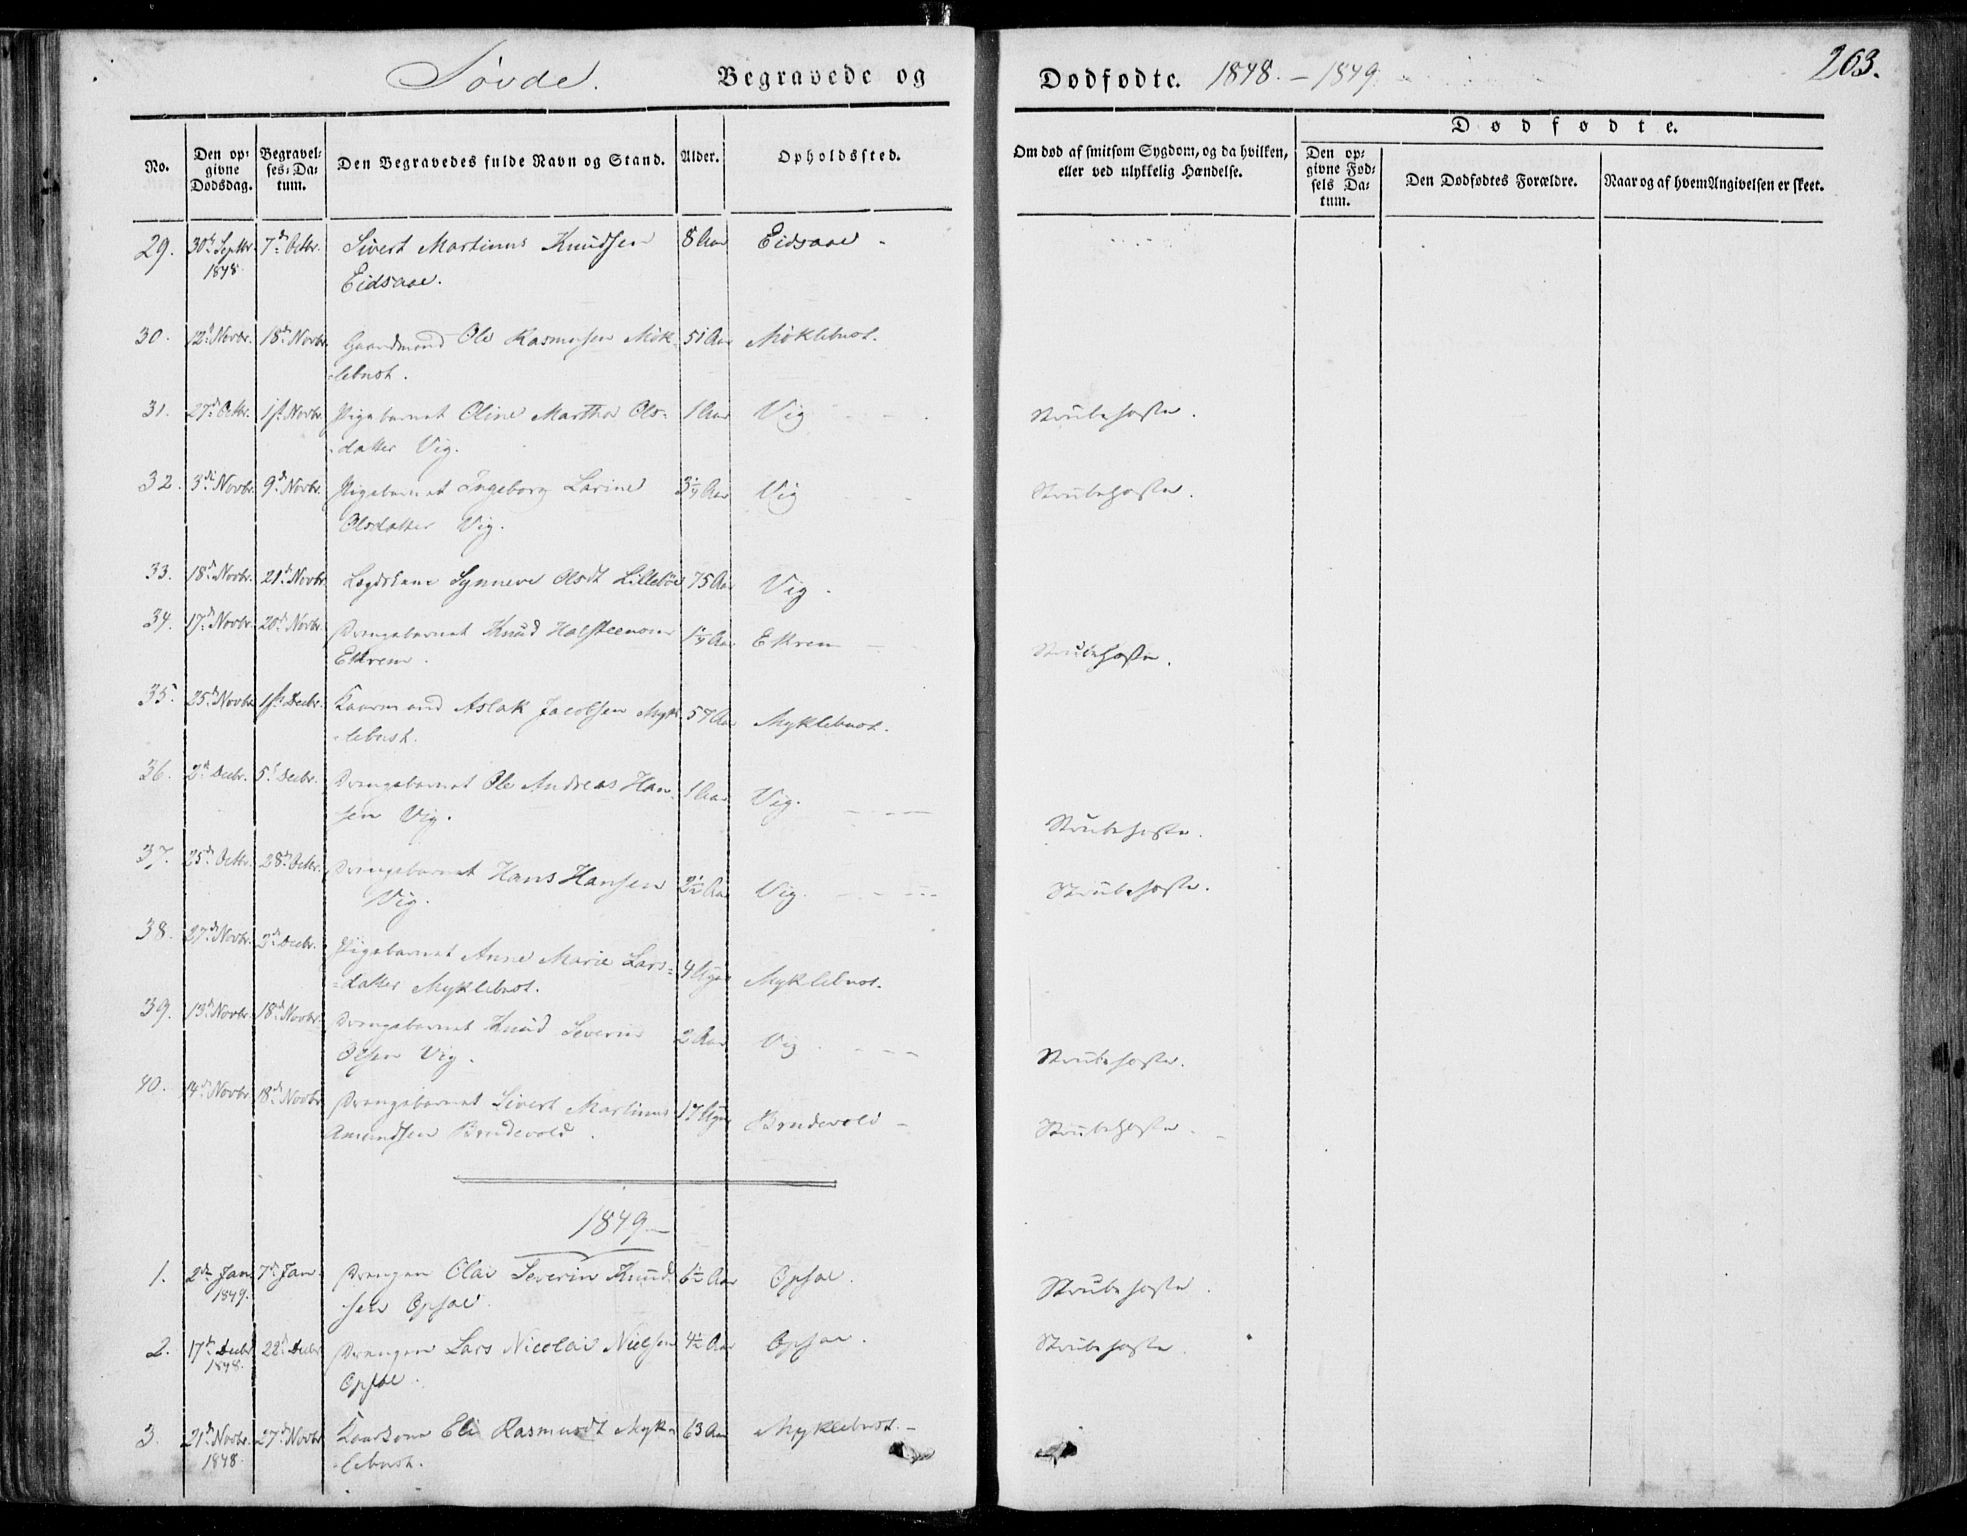 Søvde. Begravede og Dødfødte. 1848. – 1849. 263.
No. Den opgivne Dødsdag. Begravelses-Datum. Den Begravedes fulde Navn og Stand. Alder. Opholdssted. Om død af smitsom Sygdom, og da hvilken, eller ved ulykkelig Hændelse. Dødfødte.
Den opgivne Fødsels Datum. Den Dødfødtes Forældre. Naar og af hvem Angivelsen er skeet.
29. 30te Septbr. 7de Octbr. Sivert Martinus Knudsen 8 Aar Eidsaae
1848. Eidsaae.
30. 12te Novbr. 18de Novbr. Gaardmand Ole Rasmusen Mök- 51 Aar Möklebust.
lebust.
31. 27de Octbr. 1ste Novbr. Pigebarnet Oline Martha Ols- 1 Aar Vig Strubehoste.
datter Vig.
32. 3die Novbr. 9de Novbr. Pigebarnet Ingeborg Larine Aar Vig Strubehoste.
Olsdatter Vig.
33. 18de Novbr. 21de Novbr. Lægdskone Synneve Olsdt Lillebøe 75 Aar Vig.
34. 17de Novbr. 20de Novbr. Drengebarnet Knud Halsteenson Aar Ekrem
Ekrem. Strubehoste.
35. 25de Novbr. 1ste Decbr. Kaarmand Aslak Jacobsen Myk- 57 Aar Myklebust.
lebust.
36. 2den Decbr. 5te Decbr. Drengebarnet Ole Andreas Han- 1 Aar Vig.
sen Vig. Strubehoste.
37. 25de Octbr. 28de Octbr. Drengebarnet Hans Hansen 2½ Aar Vig. Strubehoste.
Vig.
38. 27de Novbr. 2den Decbr. Pigebarnet Anne Marie Lars- 4 Uger Myklebust.
datter Myklebust.
39. 13de Novbr. 18de Novbr. Drengebarnet Knud Severin 2 Aar Vig.
Olsen Vig. Strubehoste.
40. 14de Novbr. 18de Novbr. Drengebarnet Sivert Martinus 17 Uger Brudevold
Amundsen Brudevold. Strubehoste.
1849.
1. 2den Jan. 7de Jan. Drengen Olai Severin Knud- 6½ Aar Opsae. Strubehoste.
1849. sen Opsae.
2. 17de Decbr. 22de Decbr. Drengen Lars Nicolai Nielsen 4½ Aar Opsae. Strubehoste.
1848. Opsae.
3. 21de Novbr. 27de Novbr. Kaarkone Eli Rasmusdt Myk- 63 Aar Myklebust.
1848. lebust.